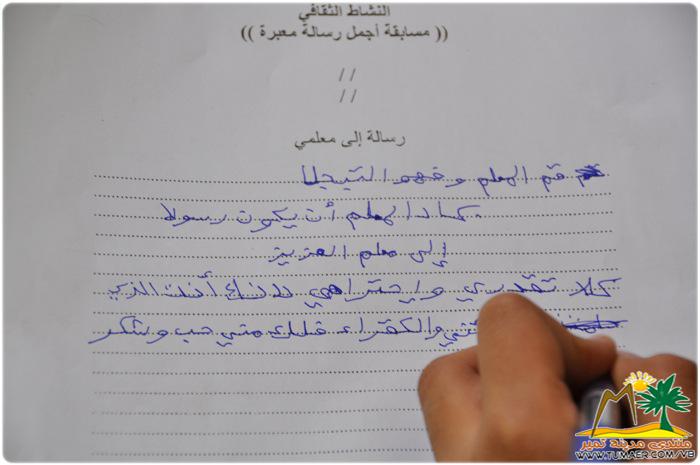 النشاط الثقافي
(( مسابقة أجمل رسالة معبرة ))
//
//
رسالة إلى معلمي
قم المعلم وفهو التبجلا
كاد المعلم أن يكون رسولا
إلى معلم العزيز
كلا تقديري وإحترامي لانك أنت الذي
والكقراء فلك مني حب وشكر
منتدى مدينة تمير
WWW.TUMAER.COM/VB